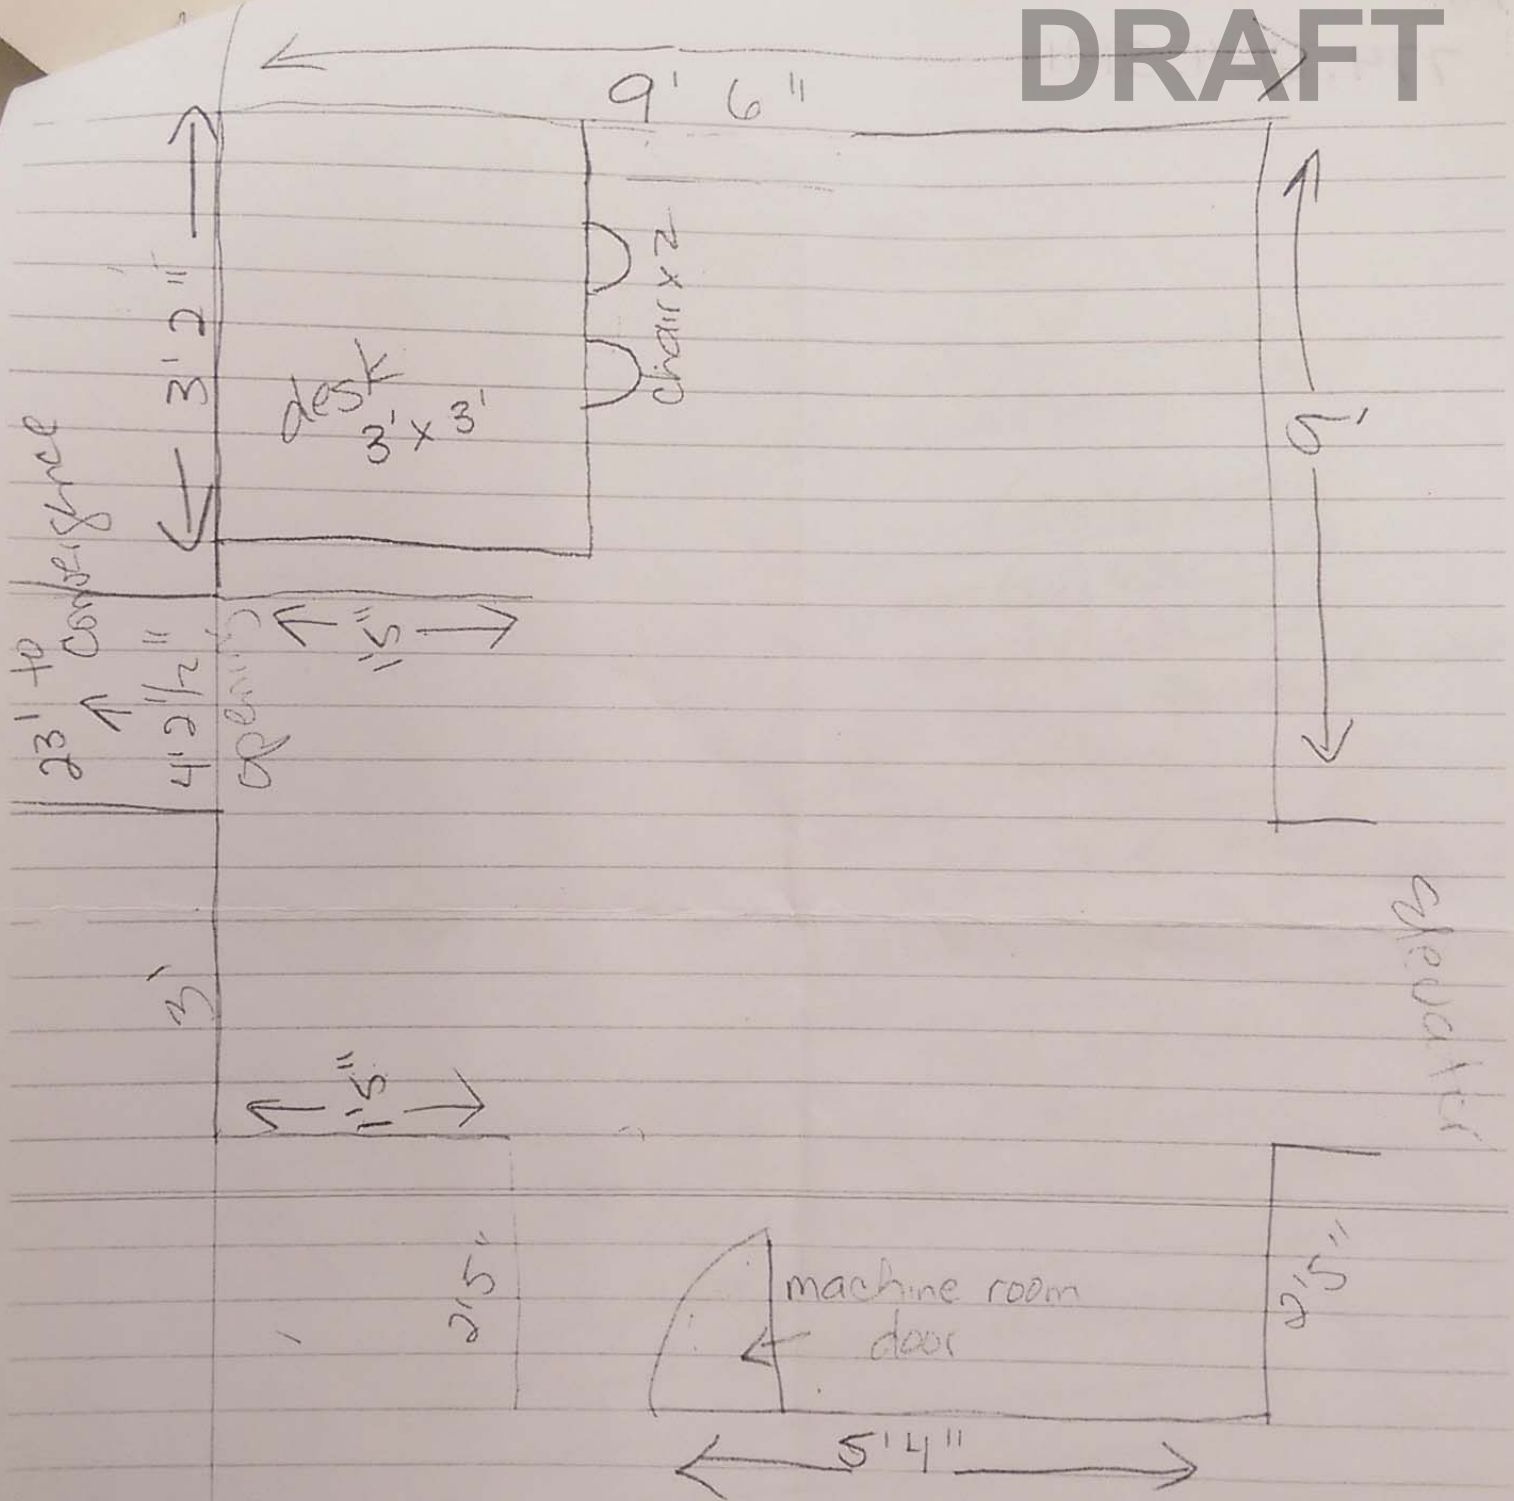 DRAFT
9' 6"
3' 2"
desk
3' x 3'
chair x 2
9'
23' to
convergence
4' 2 1/2"
opening
15"
elevator
3'
15"
2'5"
machine room
door
2'5"
5'4"